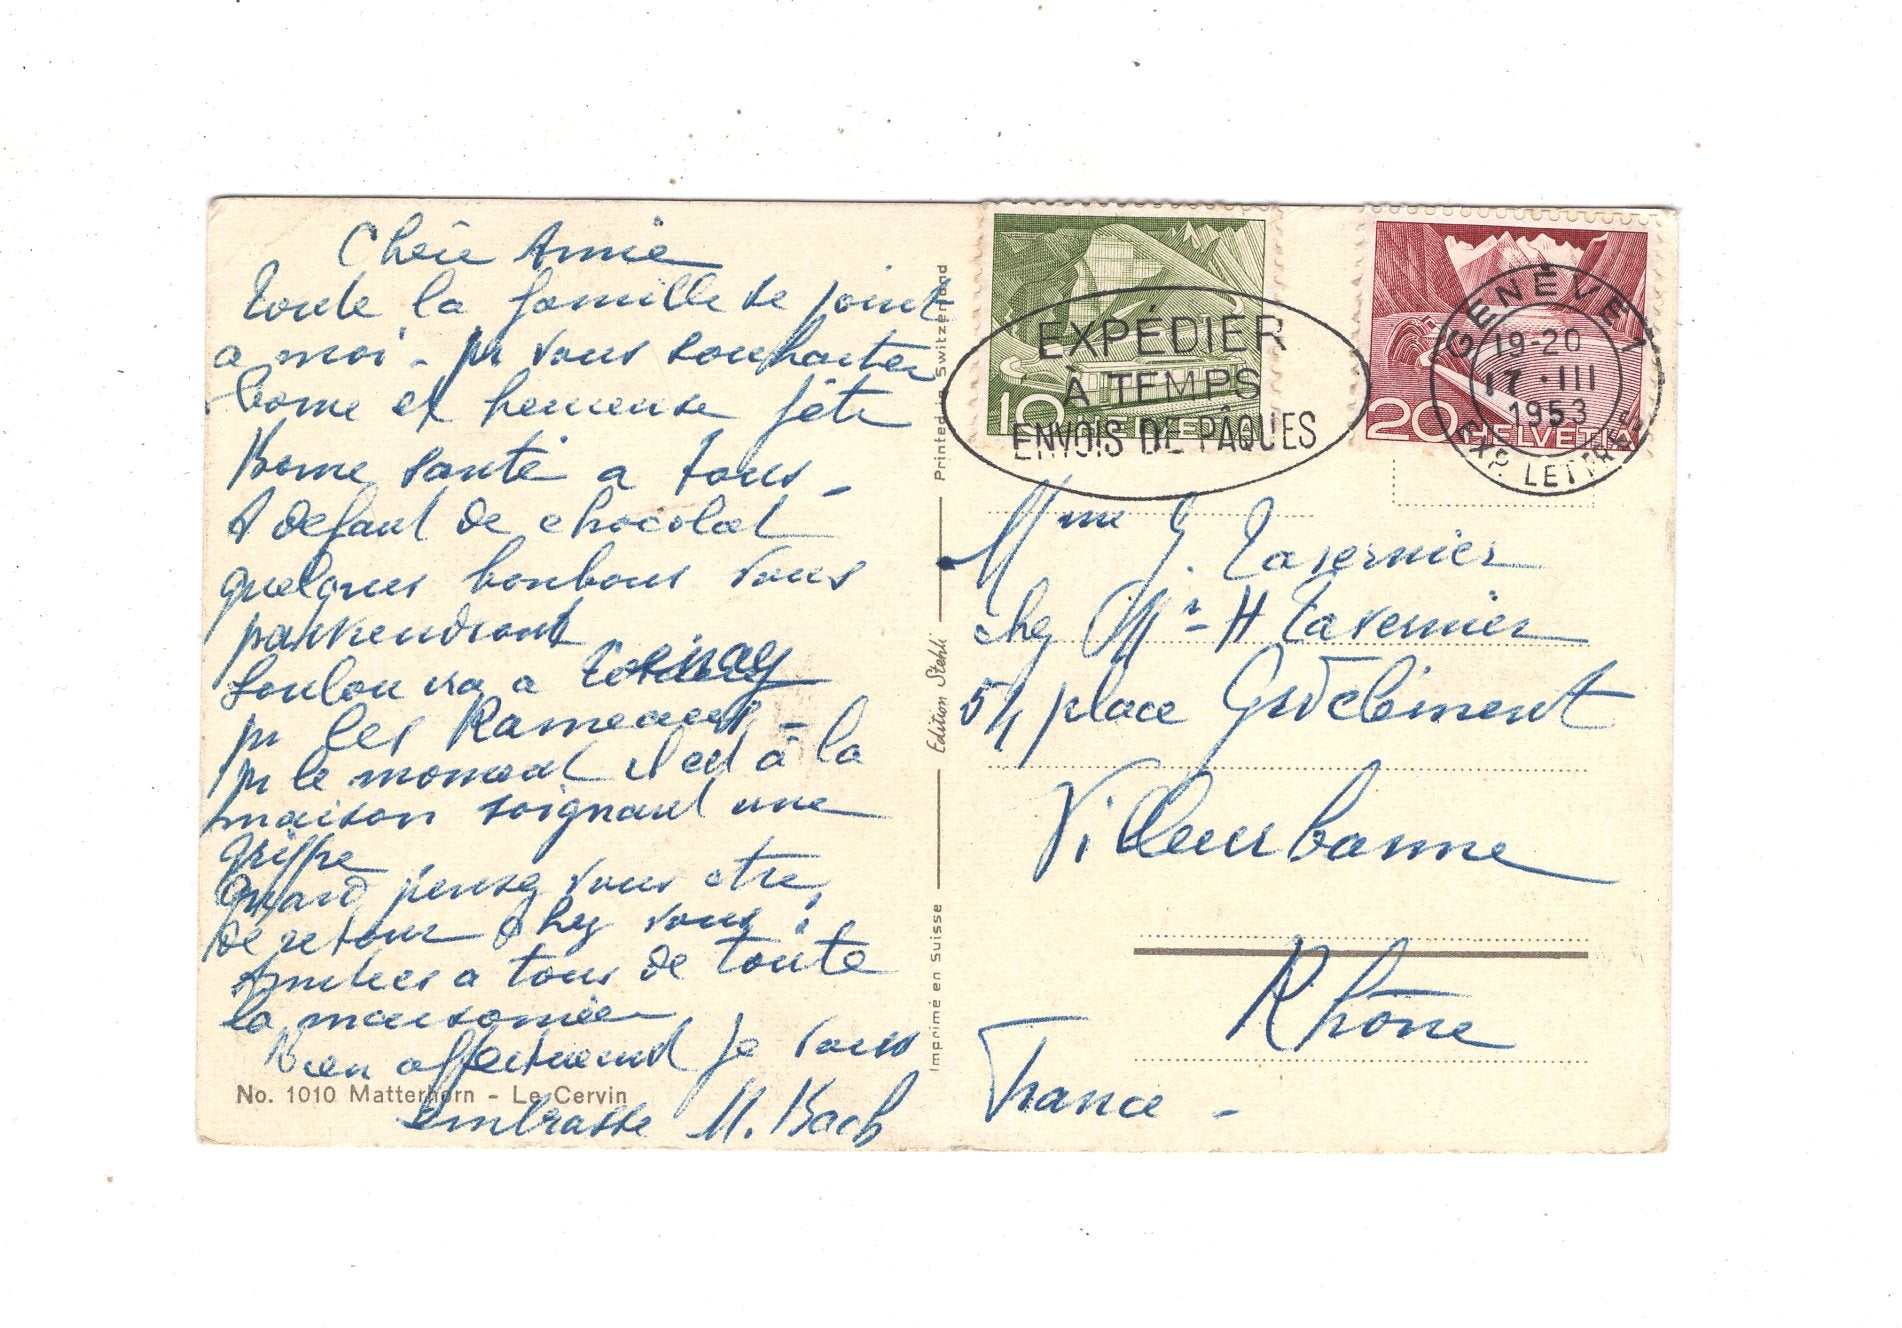 Chère Amie
Toute la famille se joint
a moi - pr vous souhaiter
bonne et heureuse fête
Bonne santé a tous -
A defaut de chocolat
quelques bonbons vous
parviendront
Loulou ira a
pr les Rameaux -
pr le moment il est à la
maison soignant une
grippe
Quand pensez vous etre
de retour chez vous ?
Amities a tous de toute
la maisonnée
Bien affectueus je vous
embrasse M. Bach
No. 1010 Matterhorn - Le Cervin
Printed in Switzerland
Edition Stehli
Imprimé en Suisse
10 HELVETIA
EXPÉDIER
À TEMPS
ENVOIS DE PÂQUES
20 HELVETIA
GENÈVE 1
19-20
17·III
1953
EXP. LETTRES
Mme G. Tavernier
chez Mr H Tavernier
54 place Grdclément
Villeurbanne
Rhône
France -